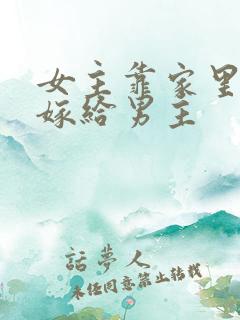 女主靠家里
嫁给男主
話夢人
未经同意禁止转载